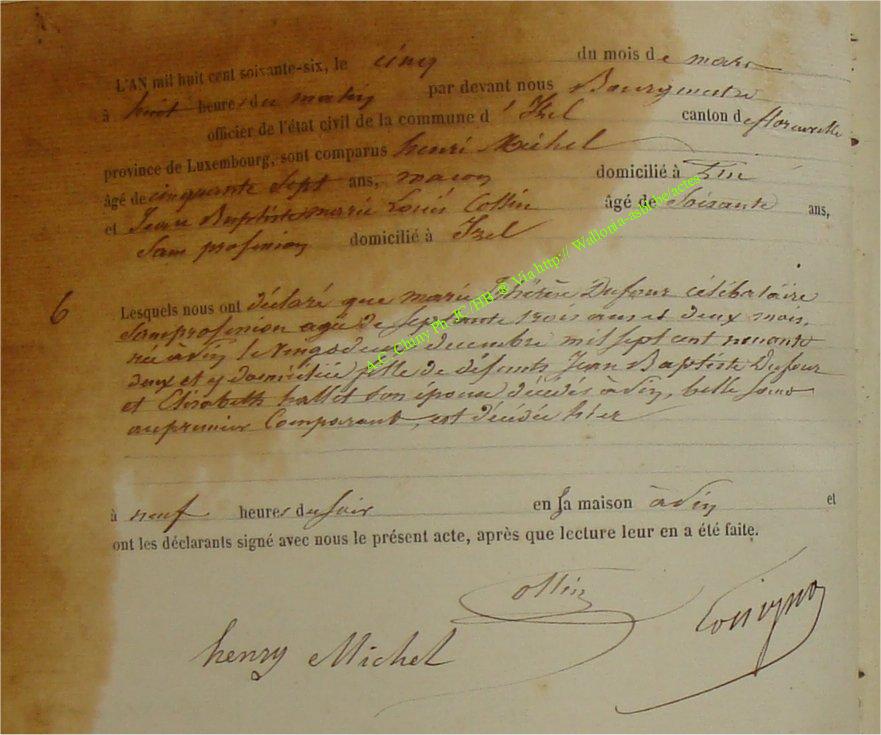 L'AN mil huit cent soixante-six, le cinq du mois de mars
à huit heures du matin par devant nous Bourgmestre
officier de l'état civil de la commune d'Izel canton de florenville
province de Luxembourg, sont comparus henri Michel
âgé de cinquante sept ans, maçon domicilié à
et Jean Baptiste marie Louis Collin âgé de Soixante ans,
Sans profession domicilié à Izel
6
Lesquels nous ont déclaré que marie Thérèse Dufour célibataire
Sans profession agée de Septante trois ans et deux mois,
née à le vingt deux decembre mil sept cent nonante
deux et y domiciliée fille de défunts Jean Baptiste Dufour
et Elisabeth hallet son épouse décédés à, belle soeur
au premier Comparant, est décédée hier
à neuf heures du soir en sa maison à et
ont les déclarants signé avec nous le présent acte, après que lecture leur en a été faite.
Collin
henry Michel
A.C. Chiny Ph. JC /HB ® Via http:// Wallonia-asbl.be/actes